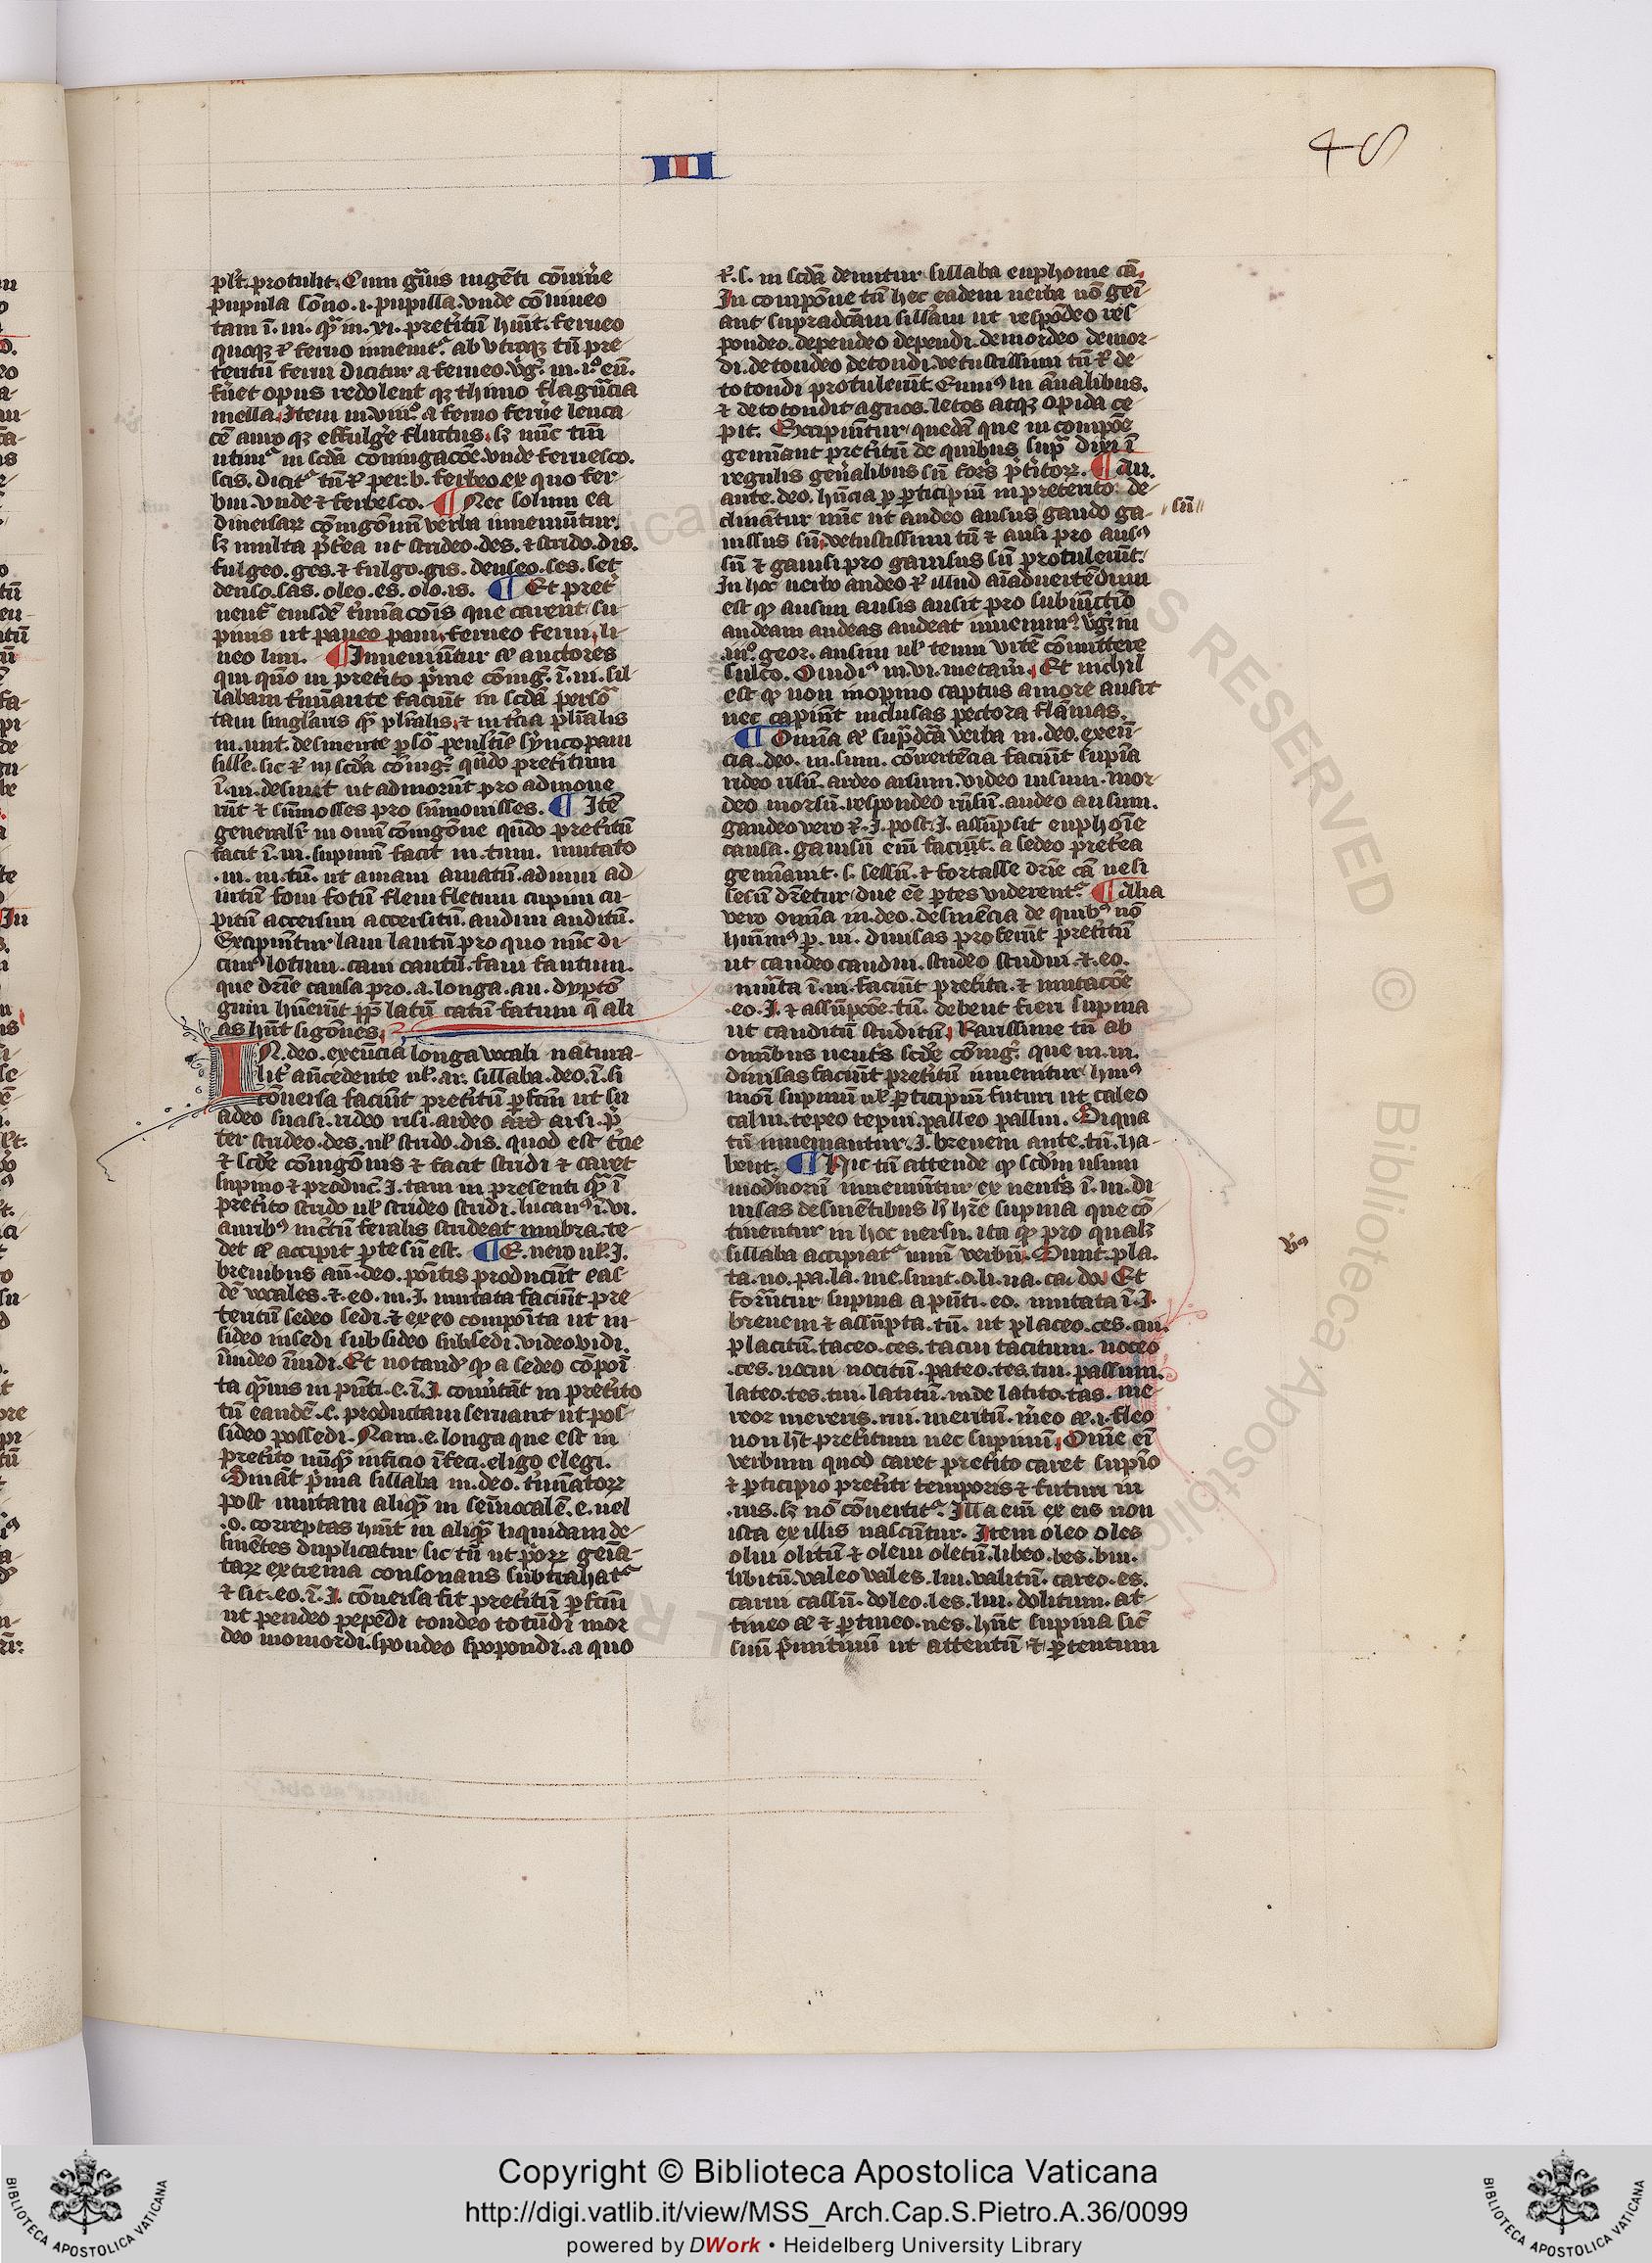 III
48
plr̄. protulit. Cum gͣuis ingēti cōniue
pupula sōno .i. pupilla. vnde cōniueo
tam ī. iii. qͣ in. vi. preteritū hn̄t. ferueo
quoqꝫ ⁊ feruo inueniūt͛. ab vtroqꝫ tn̄ pre
teritū ferui dicitur a ferueo. v̓gꝰ. in. iͦ. en̄.
fer̄uet opus redolent qꝫ thimo flagrācia
mella. Item in. viiiͦ. a feruo feruēre leuca
tē auro qꝫ effulgēre fluctus. sꝫ nūc tn̄
utim̄ in scd̄a coniugacōe. vnde feruesco.
scis. dicit͛ tn̄ ⁊ per .b. ferbeo. ex quo fer
bui. vnde ⁊ ferbesco. ¶ Nec solum ea
diuersaꝝ cōiugōnū verba inueniūtur.
sꝫ multa pret̄ea ut strideo .des. ⁊ strido .dis.
fulgeo .ges. ⁊ fulgo .gis. denseo .ses. set
denso .sas. oleo .es. olo .is. ¶ Et preter
ueut̄ eiusdē t̓minacōis que carent su
pinis ut paueo paui, ferueo ferui, li
ueo liui. ¶ Inueniūtur ⁊ auctores
qui qn̄o in preterito prime cōiug͛. ī. ui. sil
labam t̓minante faciūt in scd̄a persōa
tam singularis qͣ pluralis, ⁊ in t̓cia pluralis
in. unt. desinente psōa penultīe syncopam
sille. sic ⁊ in scd̄a cōiug͛. qn̄do preteritum
ī. ui. desinit ut admorūt pro admoue
rūt ⁊ sūmosses pro sūmouisses. ¶ Itē
generalit̓ in omi cōiugōne qn̄do preteritū
facit ī. ui. supinū facit in. tum. mutato
.ui. in. tū. ut amaui amatū. adiuui ad
iutū foui fotū fleui fletum cupiui cu
pitū accersiui accersitū. audiui auditū.
Excipiūtur laui lautū pro quo nūc di
cimꝰ lotum. caui cautū. faui fautum.
que dr̄ie causa pro .a. longa .au. dypto
gum hūerūt ꝓꝑ latū catū fatum q̄ ali
as hn̄t sig̅ōnes.
IN. deo. exeūcia longa vocali natura
lit̓ an̄cedente ul͛ .ar. sillaba .deo. ī. si
cōuersa faciūt preteritū ꝑfc̄m ut su
adeo suasi. rideo risi. ardeo ard arsi. p̓
ter strideo .des. ul͛ strido .dis. quod est t̓cie
⁊ scd̄e cōiugōnis ⁊ facit stridi ⁊ caret
supino ⁊ produc̄ .I. tam in presenti qͣ ī
preterito strido ul͛ strideo stridi. lucanꝰ ī. vi.
auribꝰ ... feralis strideat umbra. te
det ⁊ accipit ꝑtesū est. ¶ E. uero ul͛ .I.
breuibus an̄ .deo. positis producūt eas
dē vocales. ⁊ .eo. in .I. mutata faciūt pre
teritū sedeo sedi. ⁊ ex eo composita ut in
sideo insedi subsideo subsedi. video vidi.
inuideo inuidi. Et notandꝰ ꝙ a sedeo cōpoi
ta qͣuis in pn̄ti .e. ī .I. conuertāt in preterito
tn̄ eandē .e. productam seruant ut pos
sideo possedi. Nam .e. longa que est in
preterito nūqͣ inficio īfeci. eligo elegi.
Omīat prima sillaba in. deo. t̓minatoꝝ
post mutam aliqͣ in semiuocalē .e. uel
.o. correptas hn̄t in aliqͣ liquidam de
sinētes duplicatur sic tn̄ ut priorꝝ gemīa
taꝝ extrema consonans subtrahat͛
⁊ sic .eo. ī .I. cōuersa fit preteritū ꝑfc̄m
ut pendeo pepēdi tondeo totūdi mor
deo momordi. spondeo spopondi. a quo
⁊ .s. in scd̄a demitur sillaba euphonie cā.
In compōne tn̄ hec eadem uerba nō gemi
ant supradc̄am sillabam ut respōdeo res
pondeo. dependeo dependi. demordeo demor
di. detondeo detondi. vetustissimi tn̄ ⁊ de
totondi protulerūt. Enniꝰ in annalibus.
⁊ detotondit agnos. letos atqꝫ opida ce
pit. Excipiūtur quedā que in compōe
geminant preteritū de quibus supͣ dixi ī
regulis generalibus sūt fors preteritoꝝ. ¶ An.
ante .deo. hn̄cia ꝑ ꝑticipiū in preterito de
clinātur nūc ut audeo ausus gaudo ga
uissus sū. vetustissimi tn̄ ⁊ ausi pro ausꝰ
sū ⁊ gauisi pro gauisus sū protulerūt.
In hoc uerbo audeo ⁊ illud aīaduertēdum
est ꝙ ausim ausis ausit pro subiūctiuo
audeam audeas audeat inuenimꝰ. v̓g͛. in
.iiiͦ. geor. ausim ul͛ tenui vitē cōmittere
sulco. Ouidiꝰ in. vi. metam̄. Et nichil
est ꝙ non inopino captus amore ausit
nec capiūt inclusas pectora flāmas.
¶ Omīa ⁊ suprad̄ca verba in .deo. exeū
cia .deo. in .sum. cōuertēcia faciūt supina
rideo risū. ardeo arsum. video uisum. mor
deo morsū. respondeo rn̄sū. audeo ausum.
gaudeo vero ⁊ .I. post .I. assūpsit euphoīe
causa. gauisū enī faciūt. a sedeo preterea
gemināt .s. sessū. ⁊ fortasse dr̄ie cā ne si
sesū dr̄etur due eē ꝑtes viderent͛. ¶ Alia
vero omīa in .deo. desinēcia de quibꝰ nō
hūimꝰ ꝑ. ui. diuisas proferūt preteritū
ut candeo candui. studeo studui. ⁊ .eo.
mūta ī. ui. faciūt preterita. ⁊ mutacōe
.eo. I. ⁊ assūpcōe .tū. debent fieri supina
ut canditū studitū. Rarissime tn̄ ab
omnibus neutris scd̄e cōiug͛. que in. ui.
diuisas faciūt preteritū inuenitur huiꝰ
moi supinū ul͛ ꝑticipiū futuri ut caleo
calui. tepeo tepui. palleo pallui. Siqua
tn̄ inueniantur .I. breuem ante .tū. ha
bent. ¶ Hic tn̄ attende ꝙ scd̄m usum
modernorū inueniūtur ex neutris ī. ui. di
uisas desinētibus sꝫ hr̄e supina que cō
tinentur in hoc uersu. ita ꝙ pro qualꝫ
sillaba accipiat͛ unū verbū. Sunt. pla.
ta. no. pa. la. me. sunt. o. li. na. ca. do. Et
formātur supina a pn̄ti .eo. mutata ī .I.
breuem ⁊ assūpta .tū. ut placeo .ces. cui.
placitū. taceo .ces. tacui tacitum. noceo
.ces. nocui nocitū. pateo .tes. tui. passum.
lateo .tes. tui. latitū. inde latito .tas. me
reor mereris. rui. meritū. mereo ⁊ .i. fleo
non hꝫ preteritum nec supinū. Om̄e enī
verbum quod caret preterito caret supino
⁊ ꝑticipio preteriti temporis ⁊ futuri in
.rus. sꝫ nō cōuertit͛. Illa enī ex eis non
ista ex illis nascūtur. Item oleo oles
olui olitū ⁊ oleui oletū. libeo .bes. bui.
libitū. valeo vales. lui. valitū. careo .es.
carui cassū. doleo .les. lui. dolitum. at
tineo ⁊ ꝑtineo .nes. hn̄t supina sic̄
suū primitiuū ut attentū ⁊ ꝑtentum
sū
Copyright © Biblioteca Apostolica Vaticana
http://digi.vatlib.it/view/MSS_Arch.Cap.S.Pietro.A.36/0099
powered by DWork • Heidelberg University Library
BIBLIOTECA APOSTOLICA VATICANA
BIBLIOTECA APOSTOLICA VATICANA